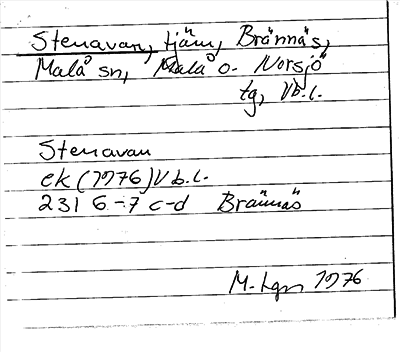 Stenavan, tjärn, Brännäs,
Malå sn, Malå o. Norsjö
tg, Vb.l.
Stenavan
ek (1976) Vb.l.
231 6-7 c-d Brännäs
M. Lgn 1976